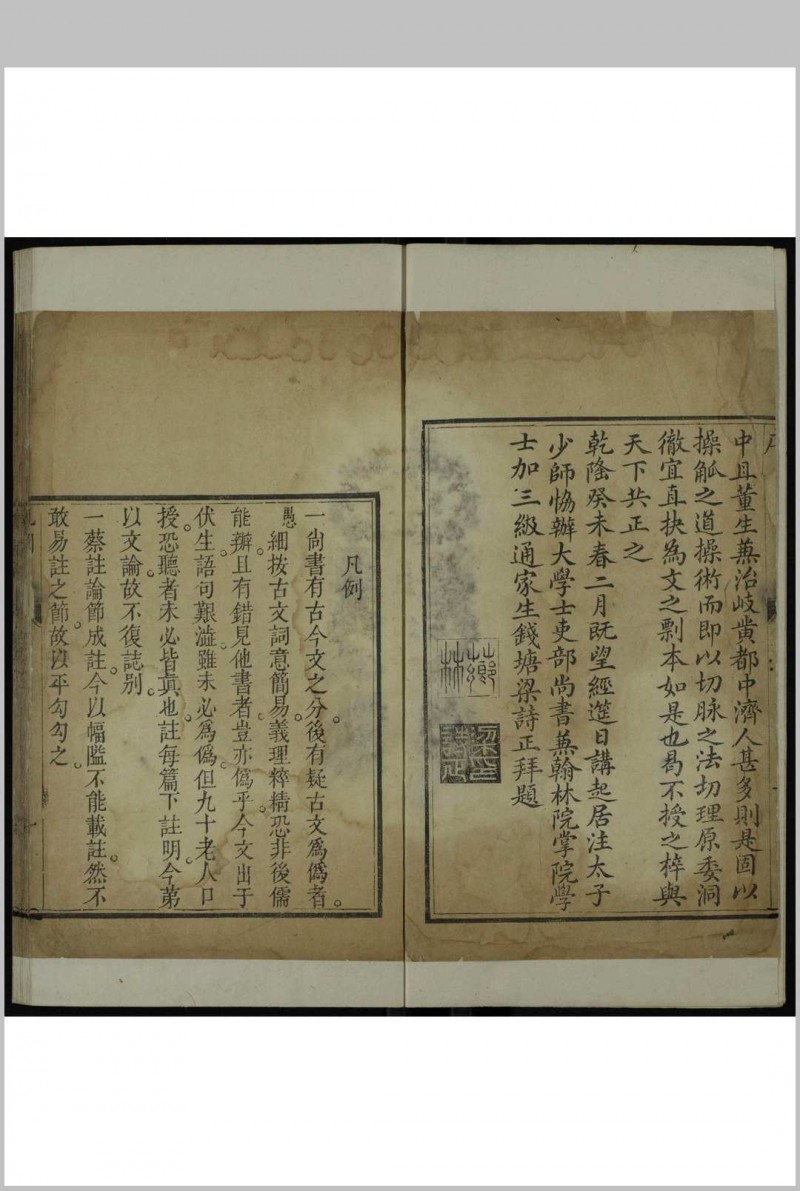 中且董生兼治岐黄都中濟人甚多則是固以
操觚之道操術而即以切脉之法切理原委洞
徹宜直抉為文之剽本如是也曷不授之梓與
天下共正之
乾隆癸未春二月既望經筵日講起居注太子
少師協辦大學士吏部尚書兼翰林院掌院學
士加三級通家生錢塘梁詩正拜題
薌林
梁印詩正
凡例
一尚書有古今文之分後有疑古文爲僞者。
愚細按古文詞意簡易。義理粹精。恐非後儒
能辦。且有錯見他書者。豈亦僞乎。今文出于
伏生。語句艱澁。雖未必爲僞。但九十老人口
授。恐聽者未必皆眞也。註每篇下註明。今第
以文論。故不復誌别。
一蔡註論節成註。今以幅隘不能載註。然不
敢易註之節。故以平勾勾之。